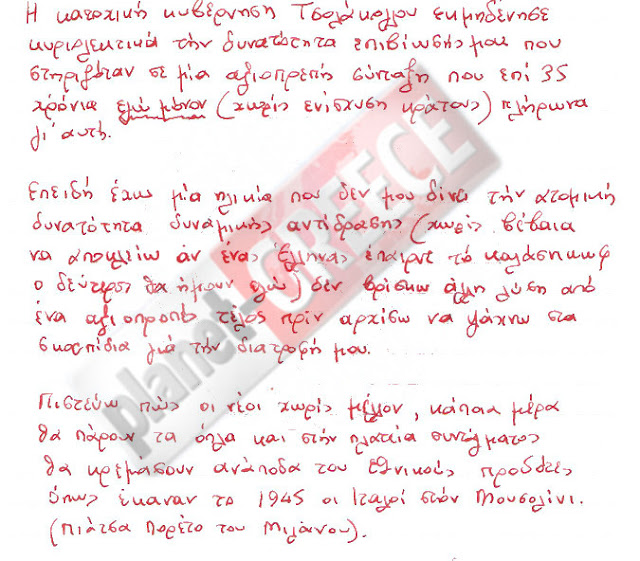 Η κατοχική κυβέρνηση Τσολάκογλου εκμηδένησε
κυριολεκτικά την δυνατότητα επιβίωσής μου που
στηριζόταν σε μία αξιοπρεπή σύνταξη που επί 35
χρόνια εγώ μόνον (χωρίς ενίσχυση κράτους) πλήρωνα
γι' αυτή.
Επειδή έχω μία ηλικία που δεν μου δίνει την ατομική
δυνατότητα δυναμικής αντίδρασης (χωρίς βέβαια
να αποκλείω άν ένας Έλληνας έπαιρνε το καλάσνικωφ
ο δεύτερος θα ήμουν εγώ) δεν βρίσκω άλλη λύση από
ένα αξιοπρεπές τέλος πρίν αρχίσω να ψάχνω στα
σκουπίδια γιά την διατροφή μου.
Πιστεύω πώς οι νέοι χωρίς μέλλον, κάποια μέρα
θα πάρουν τα όπλα και στην πλατεία συντάγματος
θα κρεμάσουν ανάποδα τους εθνικούς προδότες
όπως έκαναν το 1945 οι Ιταλοί στόν Μουσολίνι.
(Πιάτσα Λορέτο του Μιλάνου).
planet-GREECE